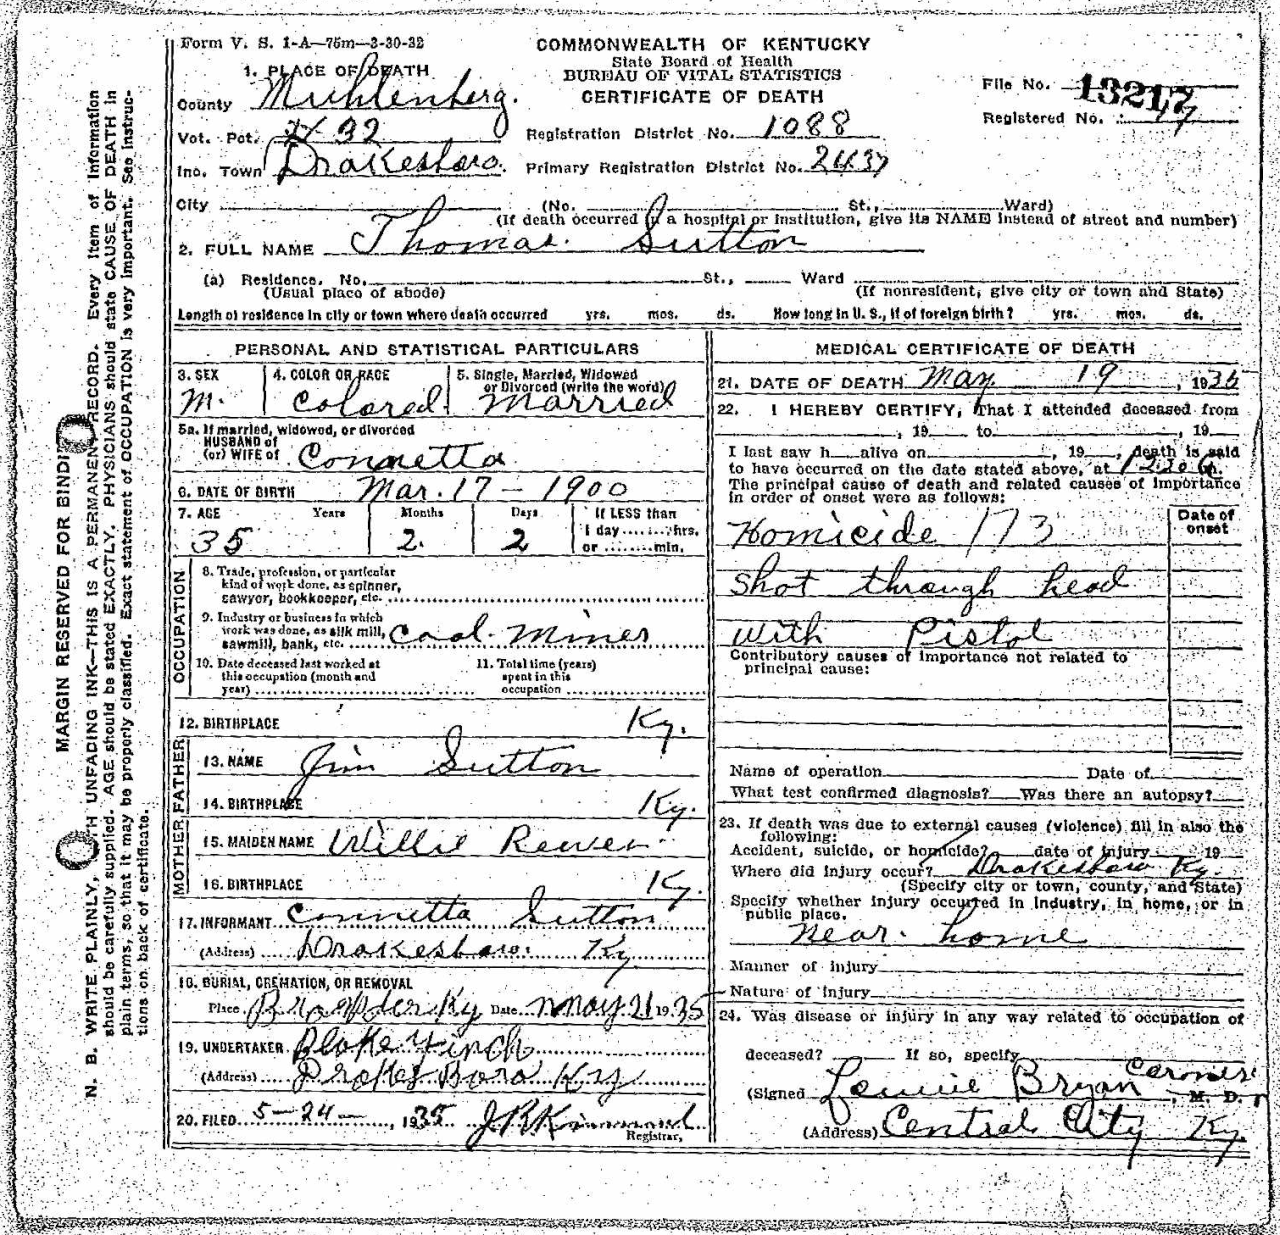 Form V. S. 1-A—75m—3-30-32
COMMONWEALTH OF KENTUCKY
State Board of Health
BUREAU OF VITAL STATISTICS
CERTIFICATE OF DEATH
File No. 13217
Registered No. 77
1. PLACE OF DEATH
County Muhlenberg.
Vot. Pct. 2432
Inc. Town Drakesboro.
Registration District No. 1088
Primary Registration District No. 2437
City (No. St., Ward)
(If death occurred in a hospital or institution, give its NAME instead of street and number)
2. FULL NAME Thomas. Sutton
(a) Residence. No. St., Ward
(Usual place of abode) (If nonresident, give city or town and State)
Length of residence in city or town where death occurred yrs. mos. ds. How long in U. S., if of foreign birth? yrs. mos. ds.
PERSONAL AND STATISTICAL PARTICULARS
3. SEX M.
4. COLOR OR RACE Colored
5. Single, Married, Widowed
or Divorced (write the word)
Married
5a. If married, widowed, or divorced
HUSBAND of
(or) WIFE of Connetta
6. DATE OF BIRTH Mar. 17 – 1900
7. AGE Years Months Days If LESS than
1 day......hrs.
or ......min.
35 2. 2
OCCUPATION
8. Trade, profession, or particular
kind of work done, as spinner,
sawyer, bookkeeper, etc.
9. Industry or business in which
work was done, as silk mill,
sawmill, bank, etc. Coal. Miner
10. Date deceased last worked at
this occupation (month and
year)
11. Total time (years)
spent in this
occupation
12. BIRTHPLACE Ky.
FATHER
13. NAME Jim Sutton
14. BIRTHPLACE Ky.
MOTHER
15. MAIDEN NAME Willie
16. BIRTHPLACE Ky.
17. INFORMANT Connetta Sutton
(Address) Drakesboro. Ky.
18. BURIAL, CREMATION, OR REMOVAL
Place Ky Date May 21 1935
19. UNDERTAKER
(Address) Drakes Boro Ky
20. FILED 5–24–, 1935
Registrar.
MEDICAL CERTIFICATE OF DEATH
21. DATE OF DEATH May 19, 1935
22. I HEREBY CERTIFY, That I attended deceased from
, 19 to , 19
I last saw h alive on , 19 , death is said
to have occurred on the date stated above, at m.
The principal cause of death and related causes of importance
in order of onset were as follows:
Date of
onset
Homicide 173
Shot through head
with Pistol
Contributory causes of importance not related to
principal cause:
Name of operation Date of
What test confirmed diagnosis? Was there an autopsy?
23. If death was due to external causes (violence) fill in also the
following:
Accident, suicide, or homicide? date of injury 19
Where did injury occur? Drakesboro Ky.
(Specify city or town, county, and State)
Specify whether injury occurred in industry, in home, or in
public place.
near. home
Manner of injury
Nature of injury
24. Was disease or injury in any way related to occupation of
deceased? If so, specify
(Signed Bryan Coroner, M. D.
(Address) Central City Ky.
MARGIN RESERVED FOR BINDI
N. B. WRITE PLAINLY, UNFADING INK—THIS IS A PERMANEN RECORD. Every item of information
should be carefully supplied. AGE should be stated EXACTLY. PHYSICIANS should state CAUSE OF DEATH in
plain terms, so that it may be properly classified. Exact statement of OCCUPATION is very important. See instruc-
tions on back of certificate.